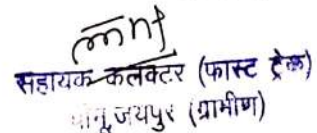 सहायक कलक्टर (फास्ट ट्रेक)
जयपुर (ग्रामीण)